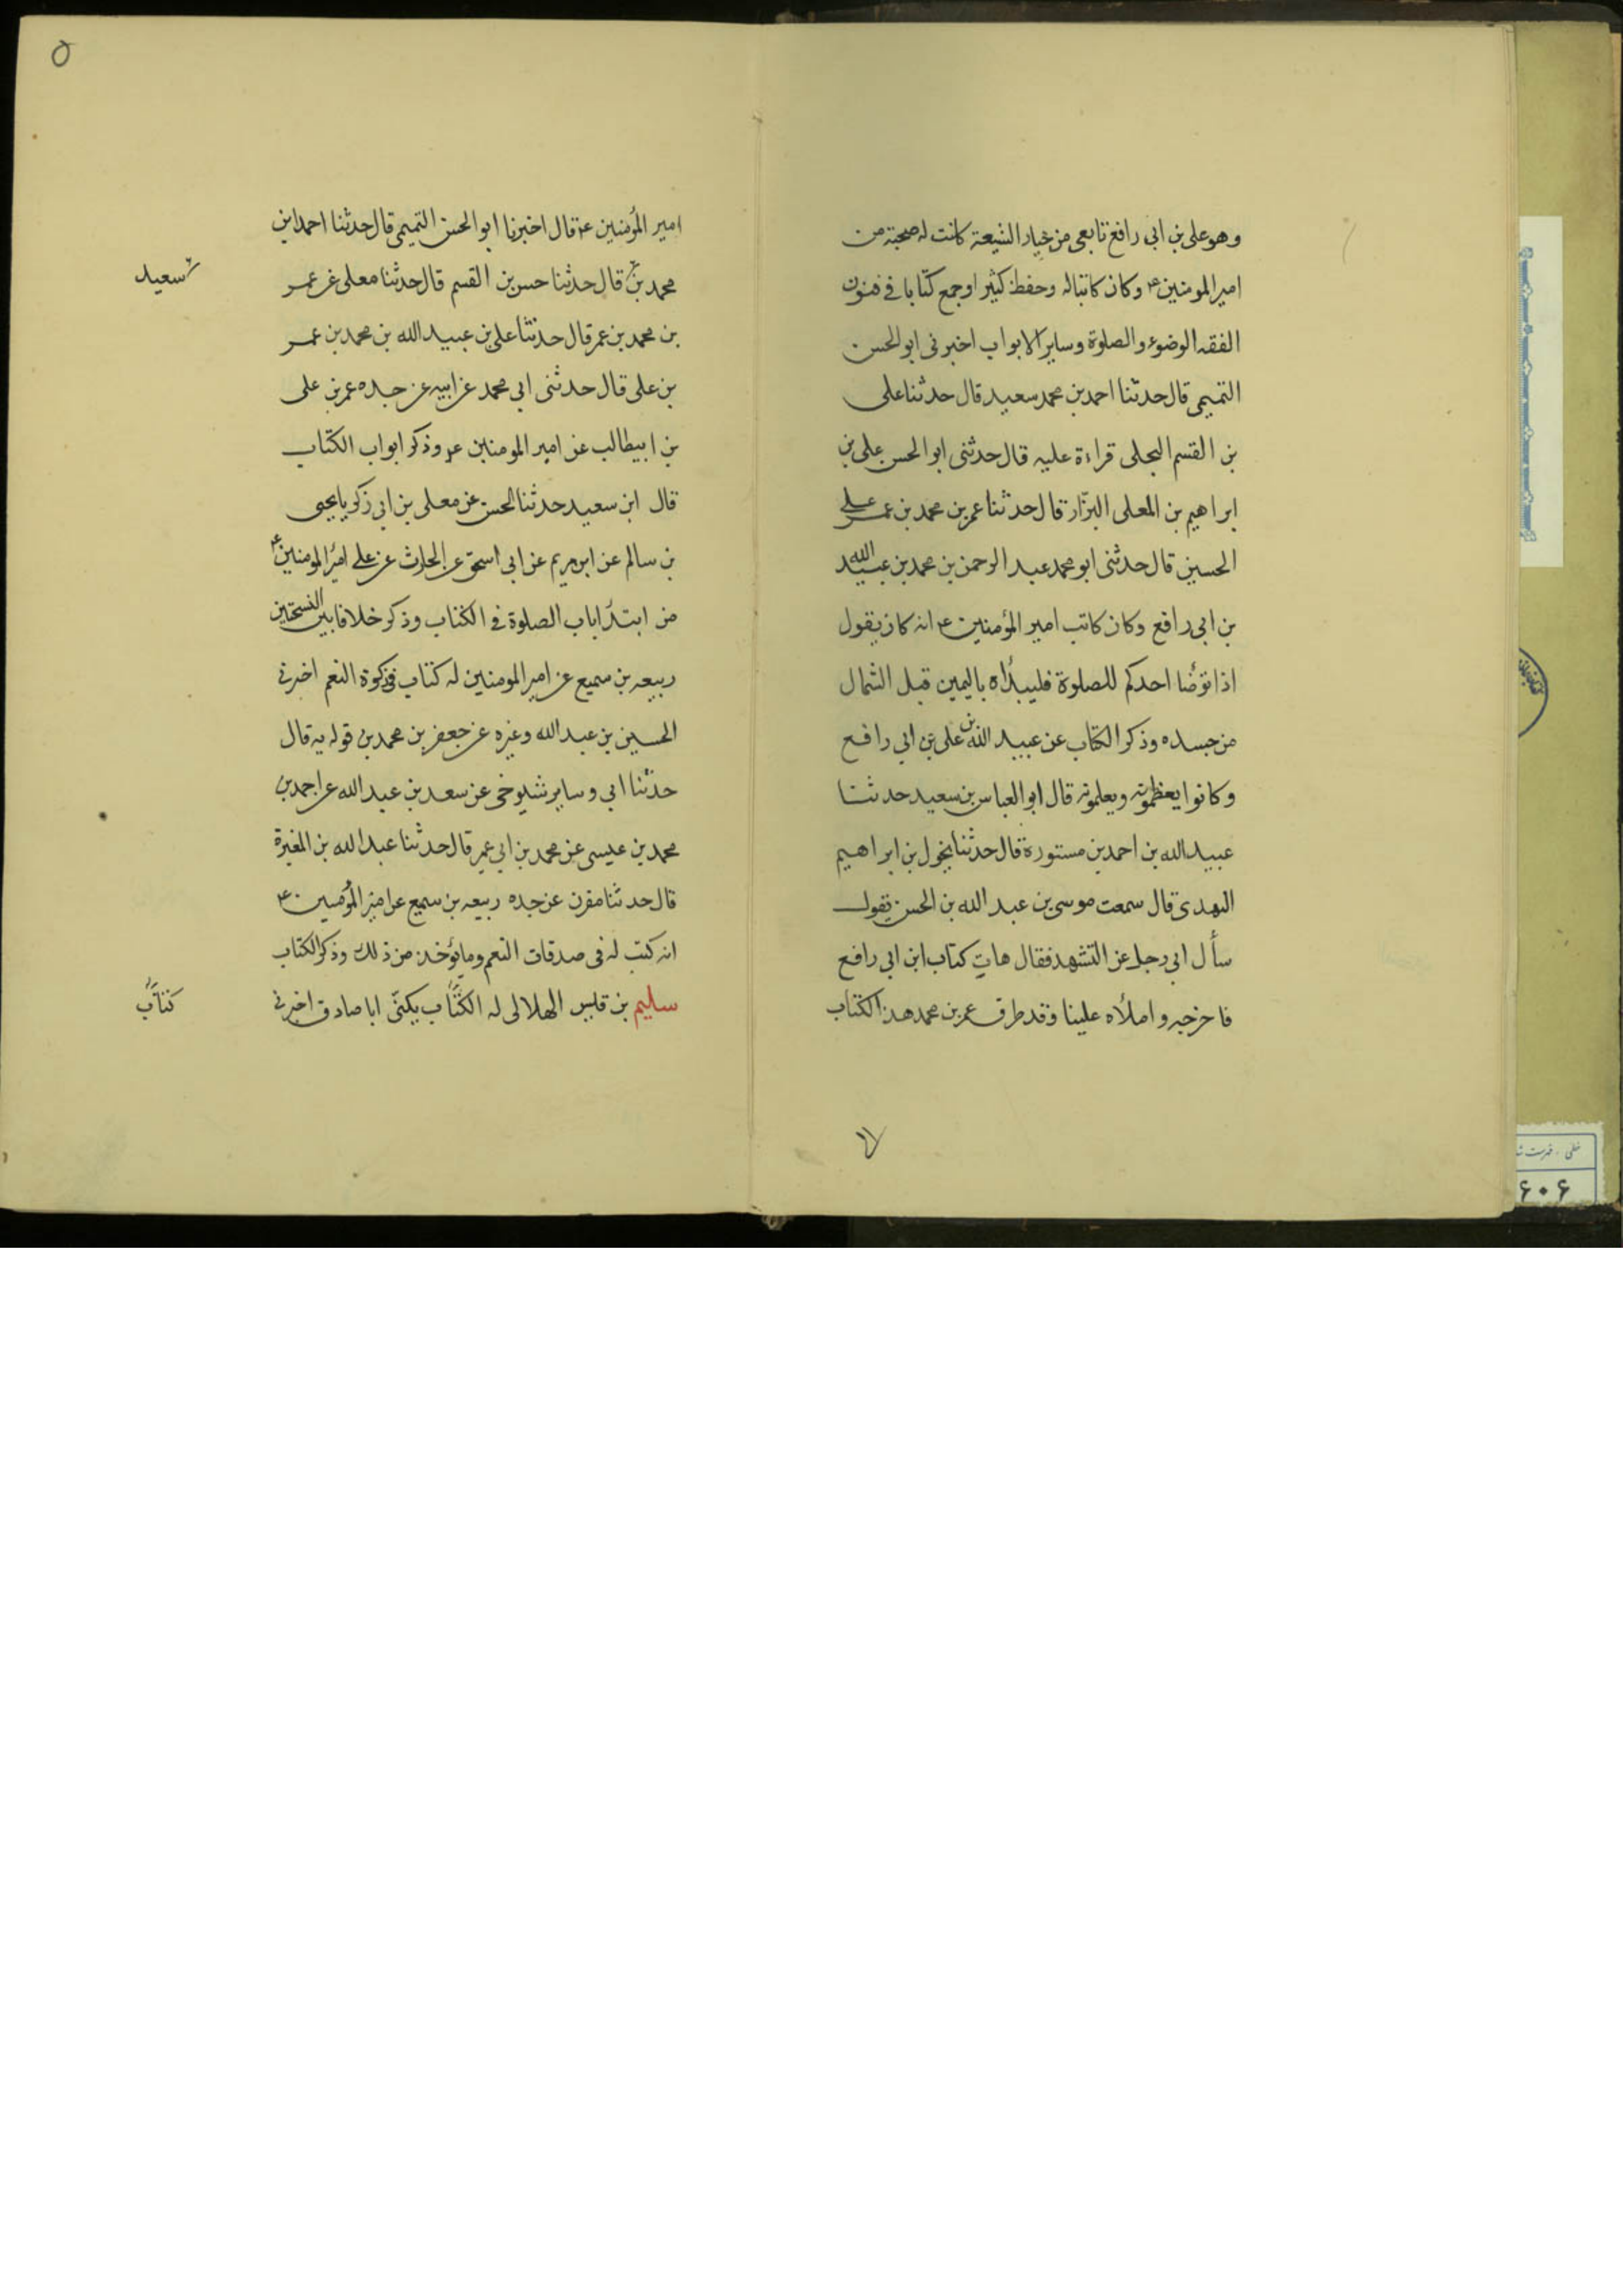 وهو على بن ابى رافع تابعى من خيار الشيعة كانت له صحبة من
امير المومنين ع وكان كاتبا له وحفظ كثيرا وجمع كتابا فى فنون
الفقه الوضوء والصلوة وساير الابواب اخبرنى ابو الحسن
التميمى قال حدثنا احمد بن محمد سعيد قال حدثنا على
بن القسم البجلى قراءة عليه قال حدثنى ابو الحسن على بن
ابراهيم بن المعلى البزار قال حدثنا عمر بن محمد بن عمر على
الحسين قال حدثنى ابو محمد عبد الرحمن بن محمد بن عبيد الله
بن ابى رافع وكان كاتب امير المؤمنين ع انه كان يقول
اذا توضا احدكم للصلوة فليبداه باليمين قبل الشمال
من جسده وذكر الكتاب عن عبيد الله بن على بن ابى رافع
وكانوا يعظمونه ويعلمونه قال ابو العباس بن سعيد حدثنا
عبيد الله بن احمد بن مستورة قال حدثنا يخول بن ابراهيم
النهدى قال سمعت موسى بن عبد الله بن الحسن يقول
سأل ابى رجل عن التشهد فقال هات كتاب ابن ابى رافع
فاخرجه واملأه علينا وقد طرق عمر بن محمد هذا الكتاب
۵
امير المؤمنين ع قال اخبرنا ابو الحسن التميمى قال حدثنا احمد ابن
محمد بن قال حدثنا حسن بن القسم قال حدثنا معلى عن عمر
سعيد
بن محمد بن عمر قال حدثنا على بن عبيد الله بن محمد بن عمر
بن على قال حدثنى ابى محمد عن ابيه عن جده عمر بن على
بن ابيطالب عن امير المومنين ع وذكر ابواب الكتاب
قال ابن سعيد حدثنا الحسن عن معلى بن ابى زكريا يحيى
بن سالم عن ابو مريم عن ابى اسحق عن الحارث عن على امير المومنين ع
من ابتدا باب الصلوة فى الكتاب وذكر خلافا بين النسختين
ربيعه بن سميع عن امير المومنين له كتاب فى زكوة النعم اخبرنى
الحسين بن عبد الله وغيره عن جعفر بن محمد بن قولويه قال
حدثنا ابى وساير شيوخى عن سعد بن عبد الله عن احمد بن
محمد بن عيسى عن محمد بن ابى عمير قال حدثنا عبد الله بن المغيرة
قال حدثنا مقرن عن جده ربيعه بن سميع عن امير المؤمنين ع
انه كتب له فى صدقات النعم وما يؤخذ من ذلك وذكر الكتاب
سليم بن قيس الهلالى له الكتاب يكنّى ابا صادق اخبرنى
كتاب
۶۰۶